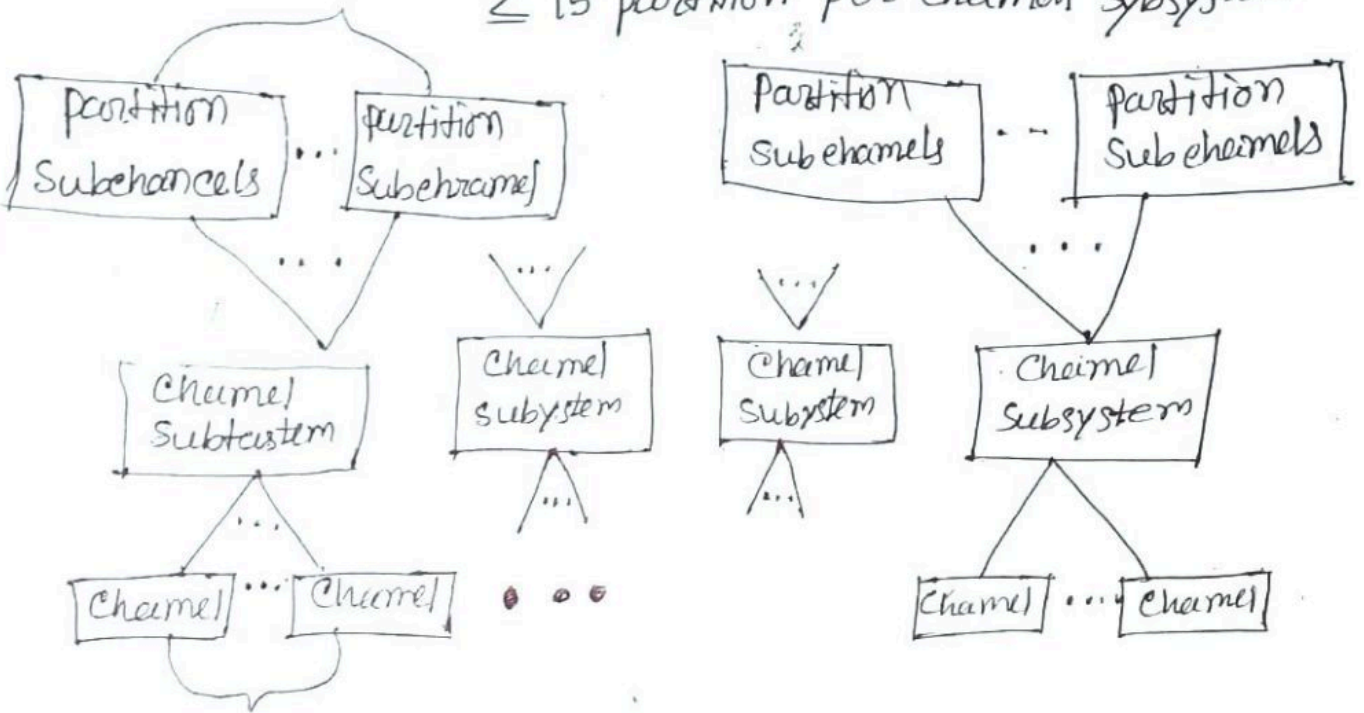 ≤ 15 partition per channel subsystem
partition
Subchancels
...
partition
Subchramel
Partition
Subchamels
...
partition
Subcheimels
...
...
...
...
Chamel
Subtastem
Chamel
subystem
Chamel
subystem
Cheimel
subsystem
...
...
...
Chamel
...
Chamel
...
Chamel
....
Chamel